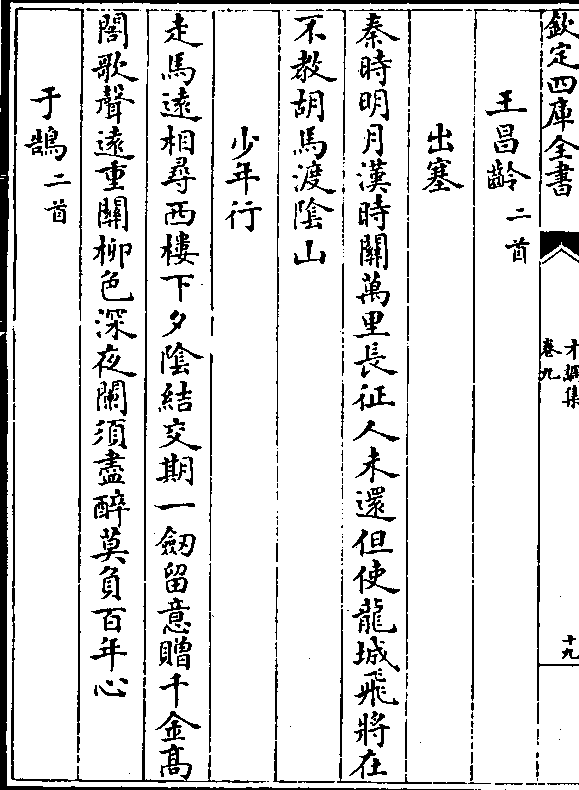 欽定四庫全書
才調集
卷九
十九
王昌齡二首
出塞
秦時明月漢時關萬里長征人未還但使龍城飛將在
不教胡馬渡陰山
少年行
走馬遠相尋西樓下夕陰結交期一劒留意贈千金髙
閣歌聲遠重關柳色深夜闌須盡醉莫負百年心
于鵠二首